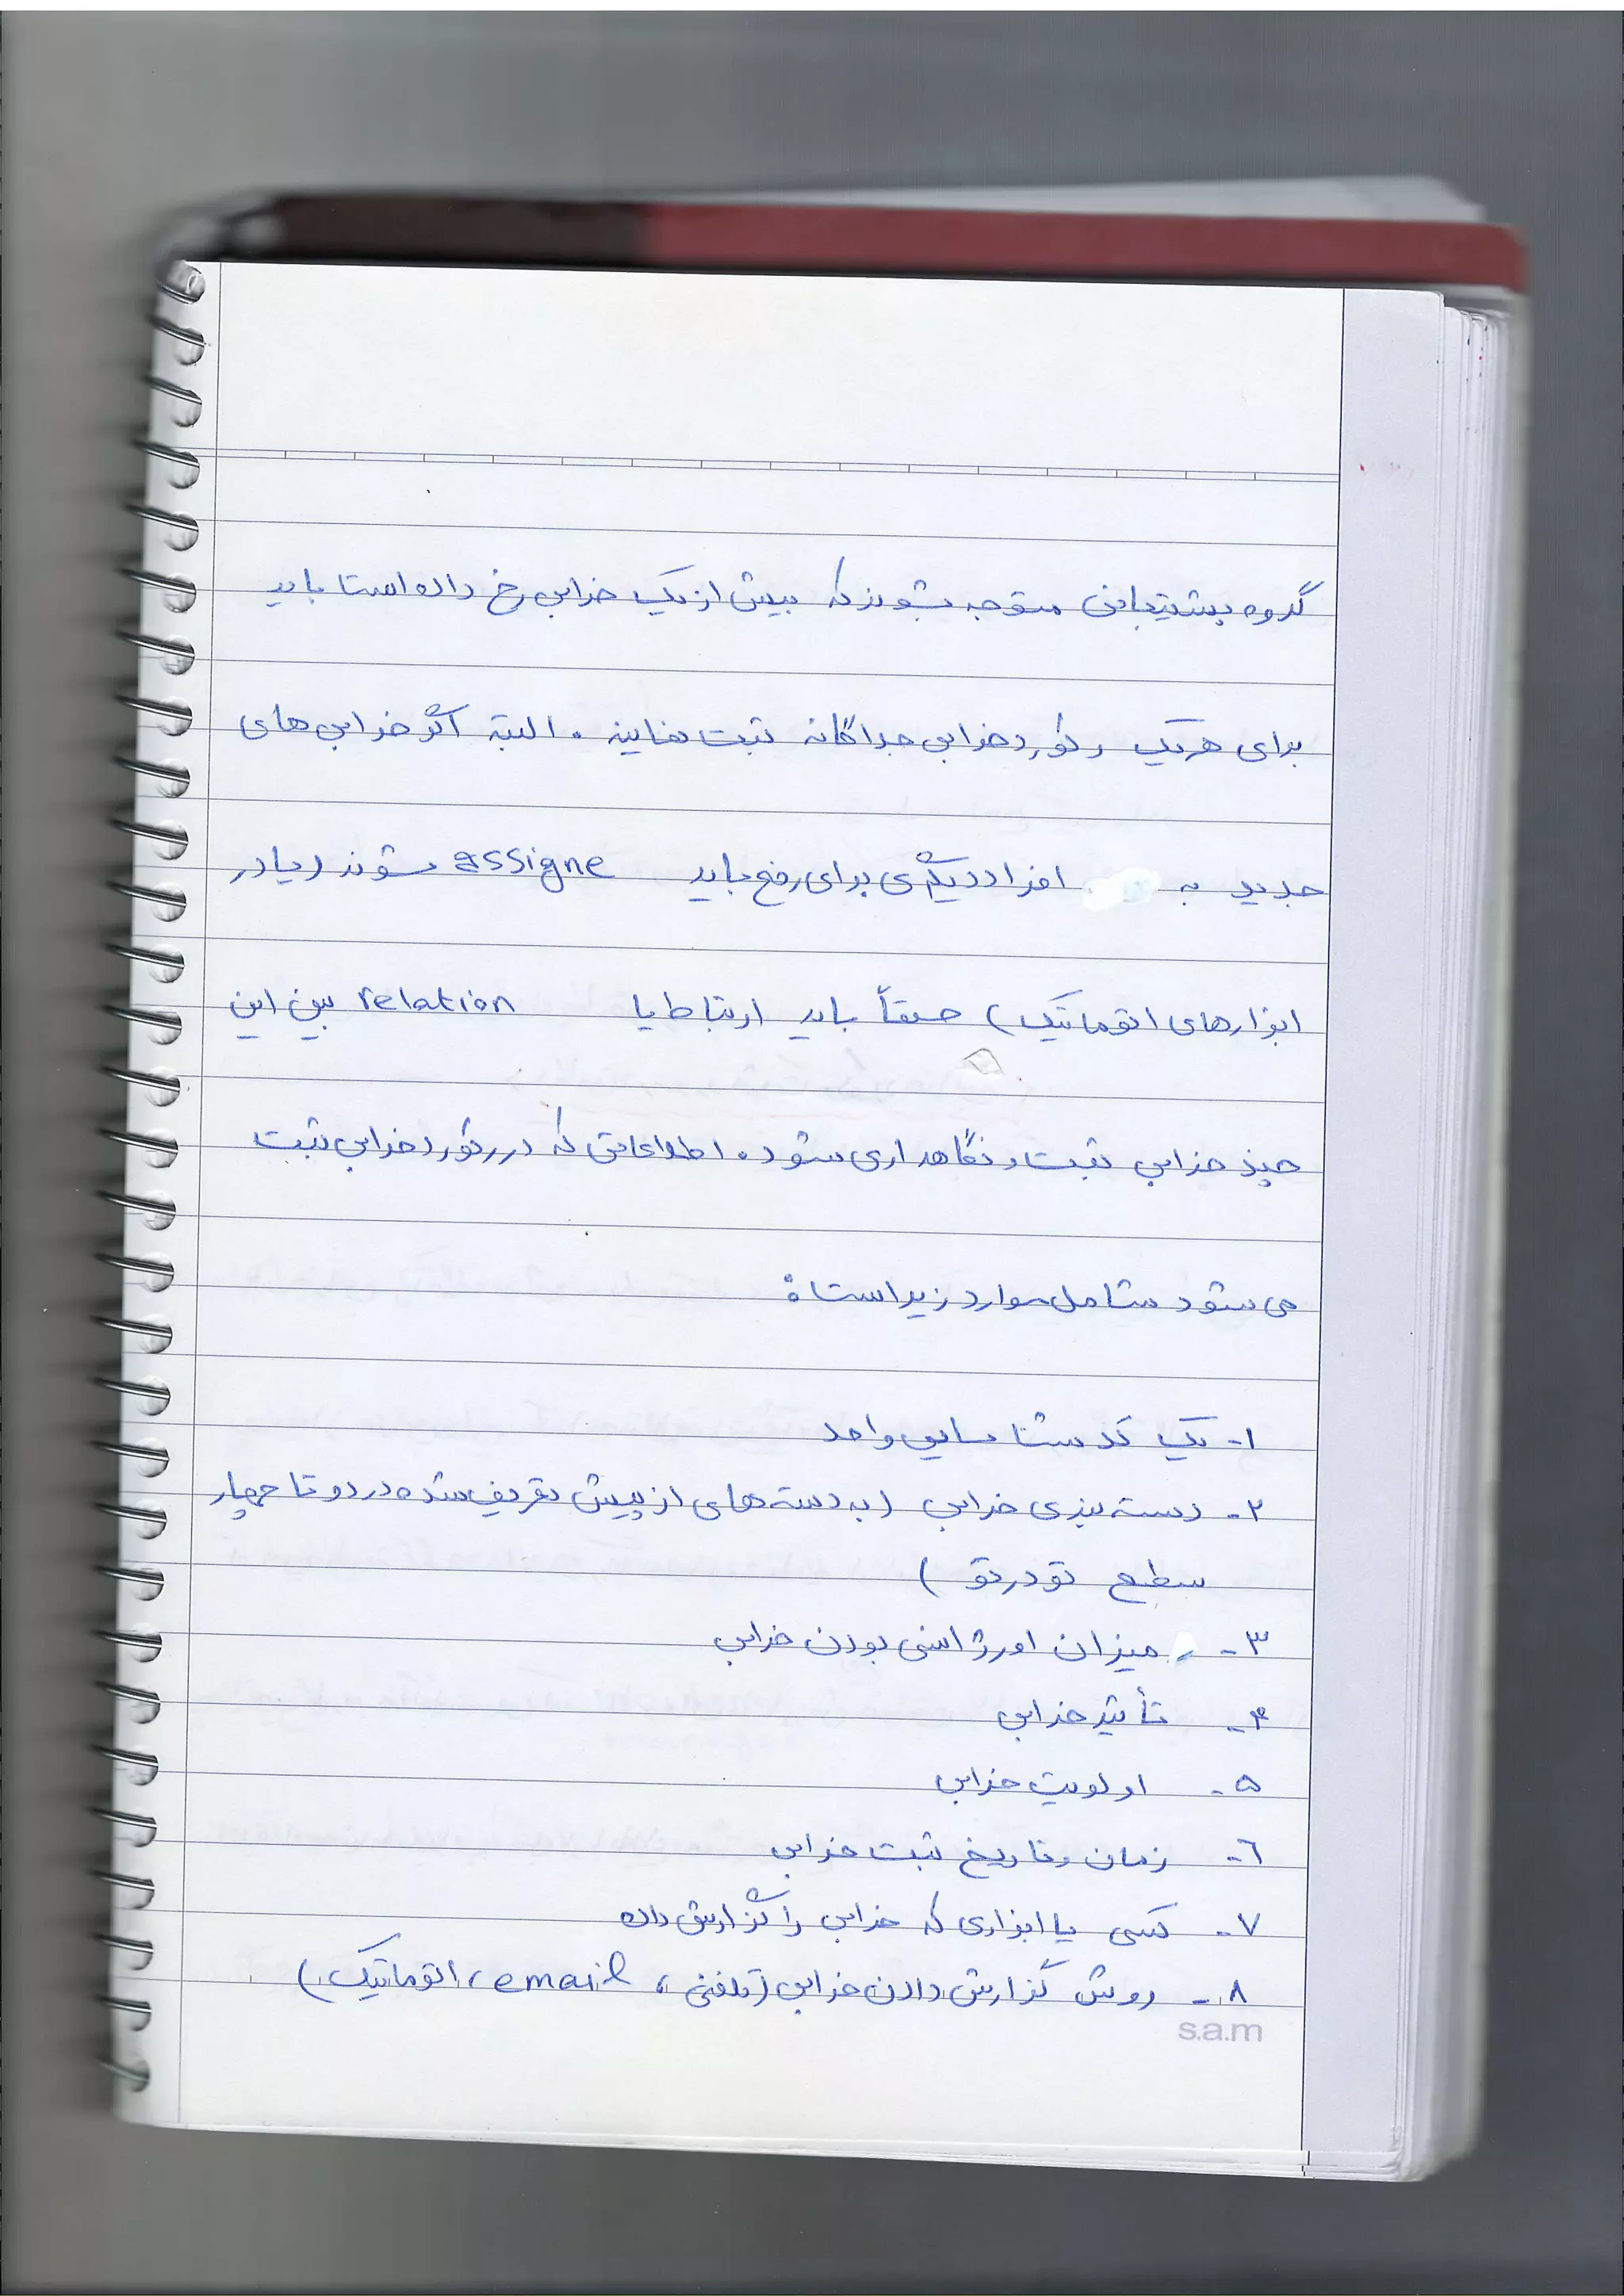 گروه پشتیبانی متوجه بشوند که بیش از یک خرابی رخ داده است باید
برای هریک رکورد خرابی جداگانه ثبت نمایند . البته اگر خرابی های
جدید به افراد دیگری برای رفع باید assigne شوند (یا در
ابزارهای اتوماتیک) حتماً باید ارتباط یا relation بین این
چند خرابی ثبت و نگاهداری شود . اطلاعاتی که در رکورد خرابی ثبت
می شود شامل موارد زیر است :
۱- یک کد شناسایی واحد
۲- دسته بندی خرابی (به دسته های از پیش تعریف شده در دو تا چهار
سطح تودرتو )
۳- میزان اورژانسی بودن خرابی
۴- تأثیر خرابی
۵- اولویت خرابی
۶- زمان و تاریخ ثبت خرابی
۷- کسی یا ابزاری که خرابی را گزارش داده
۸- روش گزارش دادن خرابی (تلفنی ، email ، اتوماتیک )
s.a.m